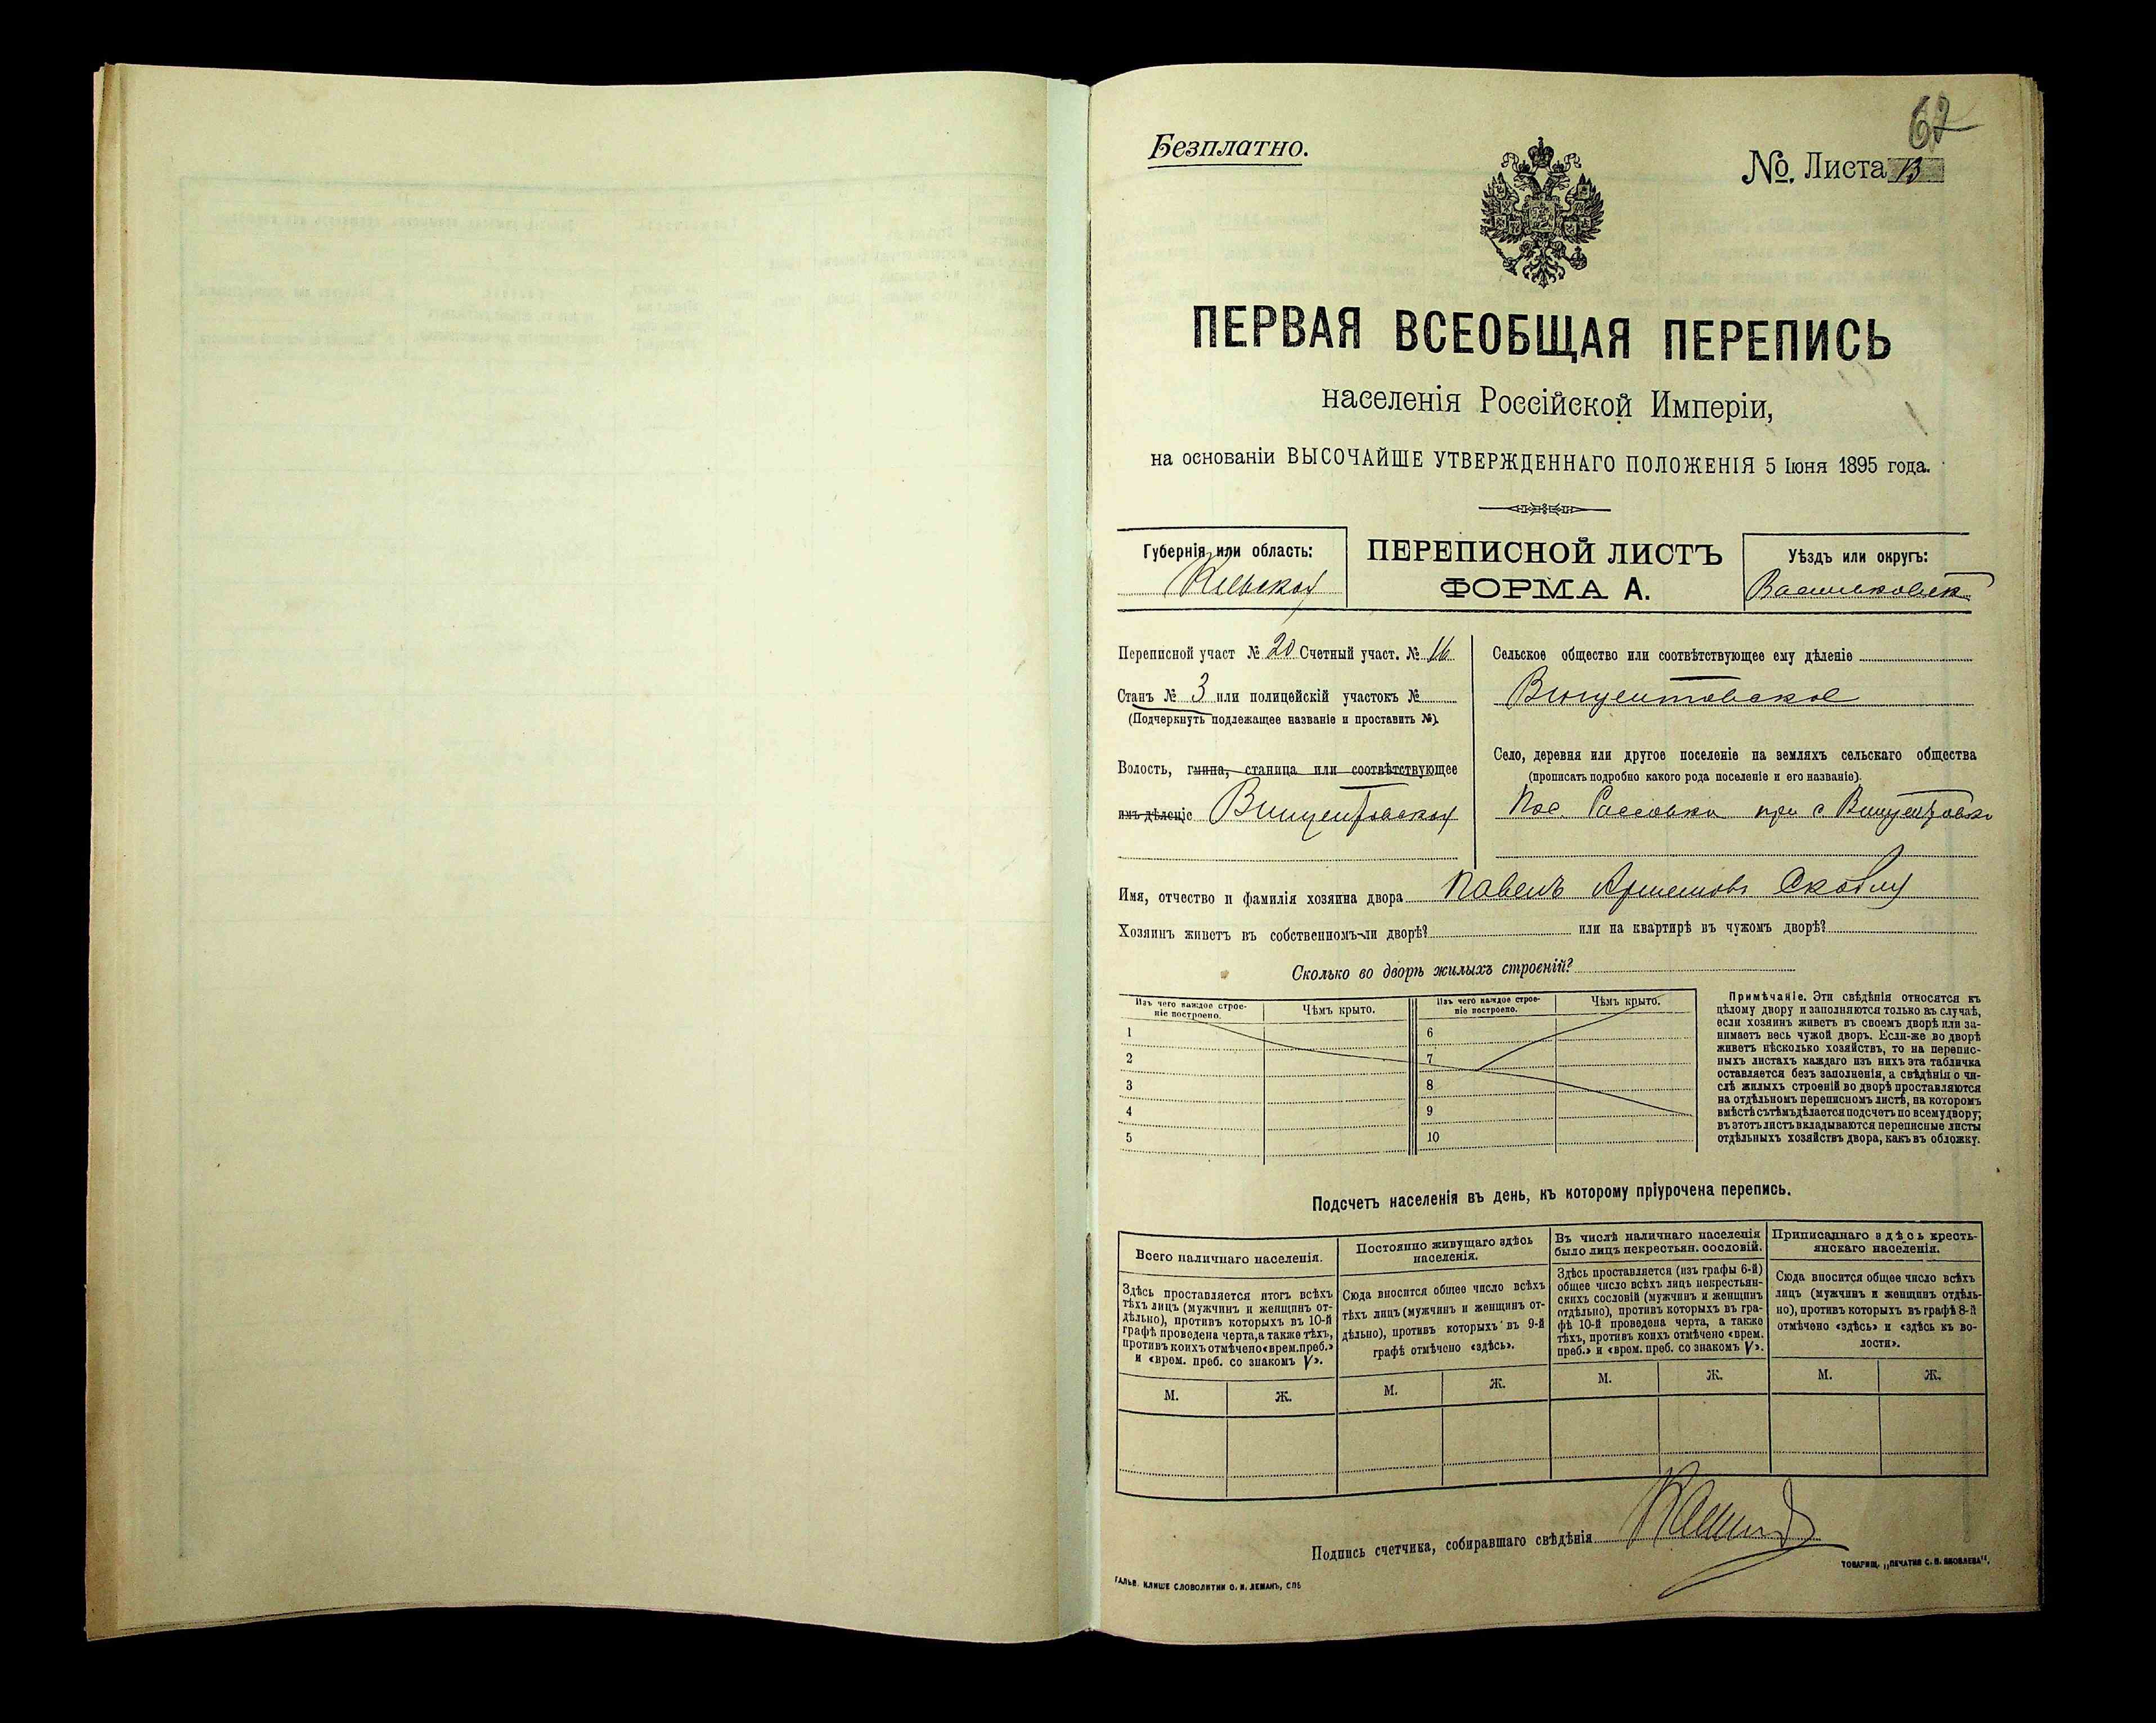 62
Безплатно.
No. Листа 13
ПЕРВАЯ ВСЕОБЩАЯ ПЕРЕПИСЬ
населенія Россійской Имперіи,
на основаніи ВЫСОЧАЙШЕ УТВЕРЖДЕННАГО ПОЛОЖЕНІЯ 5 Іюня 1895 года.
Губернія или область:
Кіевская
ПЕРЕПИСНОЙ ЛИСТЪ
ФОРМА А.
Уѣздъ или округъ:
Васильковск
Переписной участ № 20 Счетный участ. № 16
Станъ № 3 или полицейскій участокъ №
(Подчеркнуть подлежащее названіе и проставить №).
Волость, гмина, станица или соотвѣтствующее
имъ дѣленіе Винцентовская
Сельское общество или соотвѣтствующее ему дѣленіе
Винцентовское
Село, деревня или другое поселеніе на земляхъ сельскаго общества
(прописать подробно какого рода поселеніе и его названіе).
Пос. при с Винцентовк
Имя, отчество и фамилія хозяина двора Павелъ Артемовъ Скобл
Хозяинъ живетъ въ собственномъ-ли дворѣ? или на квартирѣ въ чужомъ дворѣ?
Сколько во дворѣ жилыхъ строеній?
Изъ чего каждое строе-
ніе построено.
Чѣмъ крыто.
1
2
3
4
5
Изъ чего каждое строе-
ніе построено.
Чѣмъ крыто.
6
7
8
9
10
Примѣчаніе. Эти свѣдѣнія относятся къ
цѣлому двору и заполняются только въ случаѣ,
если хозяинъ живетъ въ своемъ дворѣ или за-
нимаетъ весь чужой дворъ. Если-же во дворѣ
живетъ нѣсколько хозяйствъ, то на перепис-
ныхъ листахъ каждаго изъ нихъ эта табличка
оставляется безъ заполненія, а свѣдѣнія о чи-
слѣ жилыхъ строеній во дворѣ проставляются
на отдѣльномъ переписномъ листѣ, на которомъ
вмѣстѣ съ тѣмъ дѣлается подсчетъ по всему двору;
въ этотъ листъ вкладываются переписные листы
отдѣльныхъ хозяйствъ двора, какъ въ обложку.
Подсчетъ населенія въ день, къ которому пріурочена перепись.
Всего наличнаго населенія.
Здѣсь проставляется итогъ всѣхъ
тѣхъ лицъ (мужчинъ и женщинъ от-
дѣльно), противъ которыхъ въ 10-й
графѣ проведена черта, а также тѣхъ,
противъ коихъ отмѣчено «врем. преб.»
и «врем. преб. со знакомъ V».
М. Ж.
Постоянно живущаго здѣсь
населенія.
Сюда вносится общее число всѣхъ
тѣхъ лицъ (мужчинъ и женщинъ от-
дѣльно), противъ которыхъ въ 9-й
графѣ отмѣчено «здѣсь».
М. Ж.
Въ числѣ наличнаго населенія
было лицъ некрестьян. сословій.
Здѣсь проставляется (изъ графы 6-й)
общее число всѣхъ лицъ некрестьян-
скихъ сословій (мужчинъ и женщинъ
отдѣльно), противъ которыхъ въ гра-
фѣ 10-й проведена черта, а также
тѣхъ, противъ коихъ отмѣчено «врем.
преб.» и «врем. преб. со знакомъ V».
М. Ж.
Приписаннаго здѣсь кресть-
янскаго населенія.
Сюда вносится общее число всѣхъ
лицъ (мужчинъ и женщинъ отдѣль-
но), противъ которыхъ въ графѣ 8-й
отмѣчено «здѣсь» и «здѣсь къ во-
лости».
М. Ж.
Подпись счетчика, собиравшаго свѣдѣнія
ГАЛЬВ. КЛИШЕ СЛОВОЛИТНИ О. И. ЛЕМАНЪ, СПБ
ТОВАРИЩ. „ПЕЧАТНЯ С. П. ЯКОВЛЕВА“.